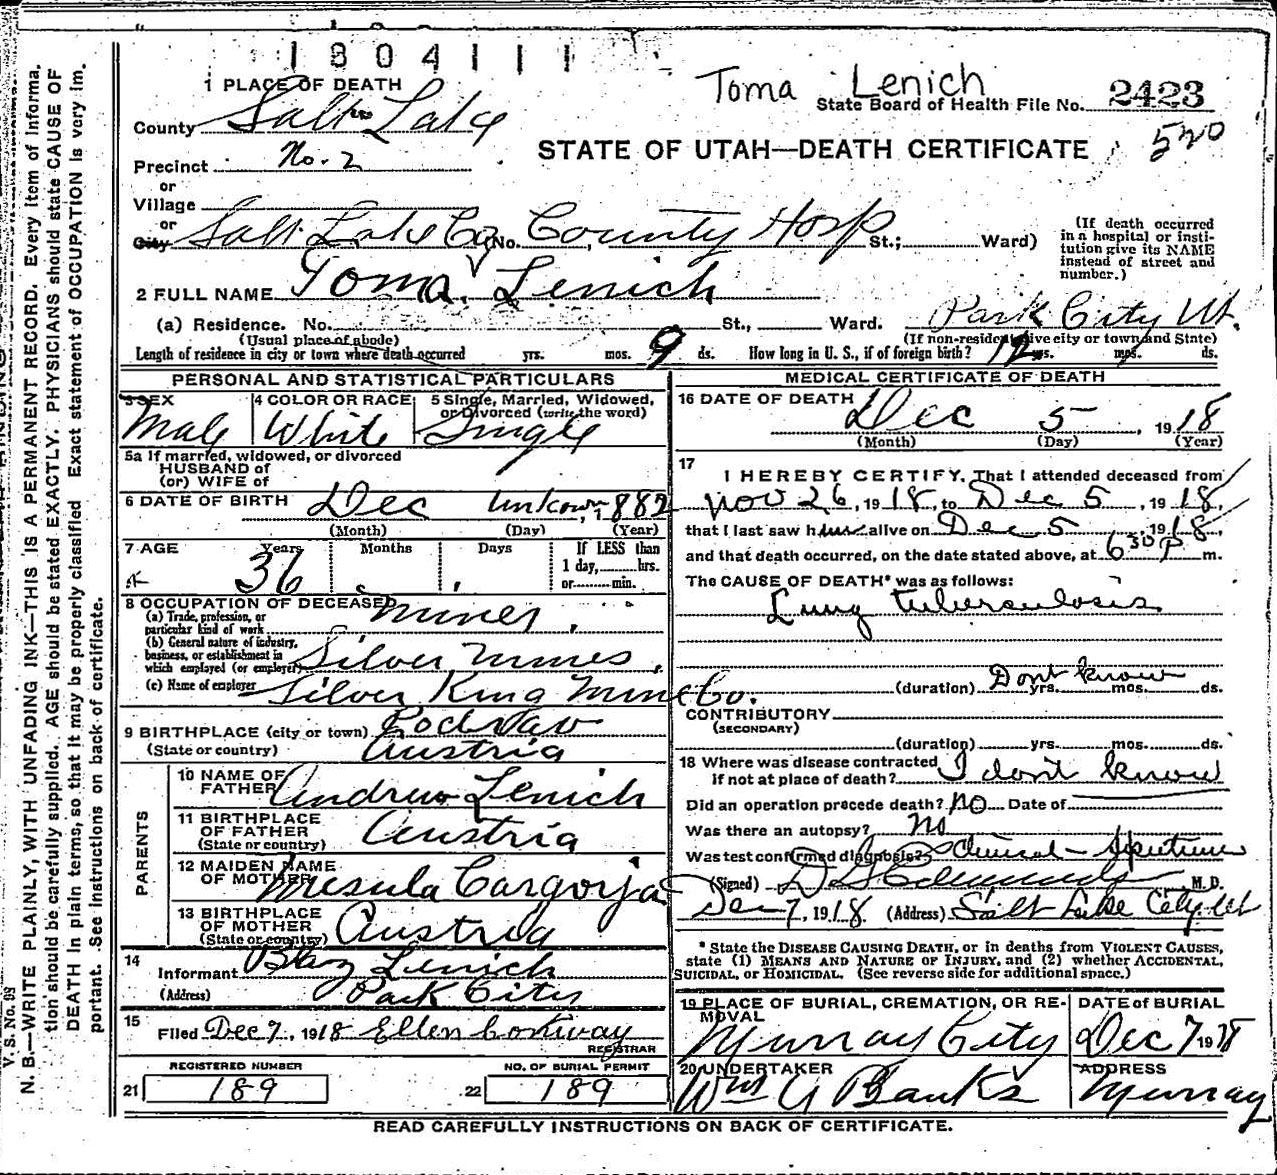 1804111
Toma Lenich
1 PLACE OF DEATH
State Board of Health File No. 2423
County Salt Lake
520
STATE OF UTAH—DEATH CERTIFICATE
Precinct No. 2
or
Village
or
City Salt Lake Co No. County Hosp St.; Ward)
(If death occurred
in a hospital or insti-
tution give its NAME
instead of street and
number.)
2 FULL NAME Toma Lenich
(a) Residence. No. St., Ward. Park City Ut.
(Usual place of abode) (If non-resident give city or town and State)
Length of residence in city or town where death occurred yrs. mos. 9 ds. How long in U. S., if of foreign birth? 12 yrs. mos. ds.
PERSONAL AND STATISTICAL PARTICULARS
3 SEX 4 COLOR OR RACE 5 Single, Married, Widowed,
or Divorced (write the word)
Male White Single
5a If married, widowed, or divorced
HUSBAND of
(or) WIFE of
6 DATE OF BIRTH Dec unkown, 1882
(Month) (Day) (Year)
7 AGE Years Months Days If LESS than
1 day, hrs.
or min.
36
8 OCCUPATION OF DECEASED
(a) Trade, profession, or
particular kind of work miner
(b) General nature of industry,
business, or establishment in
which employed (or employer) Silver mines
(c) Name of employer Silver King Mine Co.
9 BIRTHPLACE (city or town)
(State or country) Austria
PARENTS
10 NAME OF
FATHER Andrew Lenich
11 BIRTHPLACE
OF FATHER
(State or country) Austria
12 MAIDEN NAME
OF MOTHER Mesula Cargorja
13 BIRTHPLACE
OF MOTHER
(State or country) Austria
14
Informant Blaz Lenich
(Address) Park City
15
Filed Dec 7, 1918 Ellen Conway
REGISTRAR
REGISTERED NUMBER NO. OF BURIAL PERMIT
21 189 22 189
MEDICAL CERTIFICATE OF DEATH
16 DATE OF DEATH Dec 5, 1918
(Month) (Day) (Year)
17
I HEREBY CERTIFY, That I attended deceased from
Nov 26, 1918, to Dec 5, 1918,
that I last saw him alive on Dec 5 1918,
and that death occurred, on the date stated above, at 6 30 P m.
The CAUSE OF DEATH* was as follows:
Lung tuberculosis
(duration) Dont know yrs. mos. ds.
CONTRIBUTORY
(SECONDARY)
(duration) yrs. mos. ds.
18 Where was disease contracted
if not at place of death? I dont know
Did an operation precede death? No Date of
Was there an autopsy? no
Was test confirmed diagnosis? Clinical - Sputum
(Signed) M. D.
Dec 7, 1918 (Address) Salt Lake City, Ut
* State the DISEASE CAUSING DEATH, or in deaths from VIOLENT CAUSES,
state (1) MEANS AND NATURE OF INJURY, and (2) whether ACCIDENTAL,
SUICIDAL, or HOMICIDAL. (See reverse side for additional space.)
19 PLACE OF BURIAL, CREMATION, OR RE-
MOVAL
DATE of BURIAL
Murray City Dec 7 1918
20 UNDERTAKER ADDRESS
Wm A Banks Murray
READ CAREFULLY INSTRUCTIONS ON BACK OF CERTIFICATE.
V. S. No. 99
N. B.—WRITE PLAINLY, WITH UNFADING INK—THIS IS A PERMANENT RECORD. Every item of informa-
tion should be carefully supplied. AGE should be stated EXACTLY. PHYSICIANS should state CAUSE OF
DEATH in plain terms, so that it may be properly classified Exact statement of OCCUPATION is very im-
portant. See instructions on back of certificate.